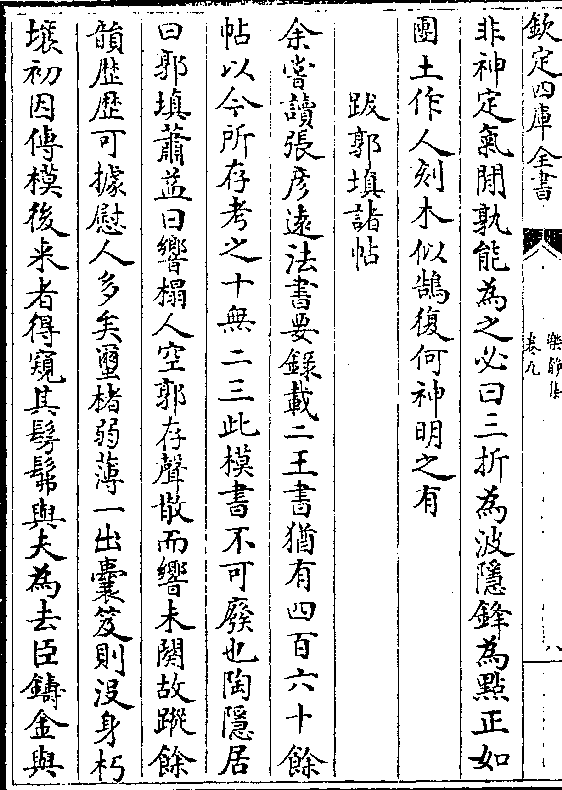 欽定四庫全書
樂靜集
卷九
八
非神定氣閒孰能為之必曰三折為波隱鋒為點正如
團土作人刻木似鵠復何神明之有
跋郭填諸帖
余嘗讀張彥遠法書要錄載二王書猶有四百六十餘
帖以今所存考之十無二三此模書不可廢也陶隱居
曰郭填蕭益曰響榻人空郭存聲散而響未闋故蹤餘
韻歴歴可據慰人多矣璽楮弱薄一出囊笈則沒身朽
壞初因傳模後来者得窺其髣髴與夫為去臣鑄金與